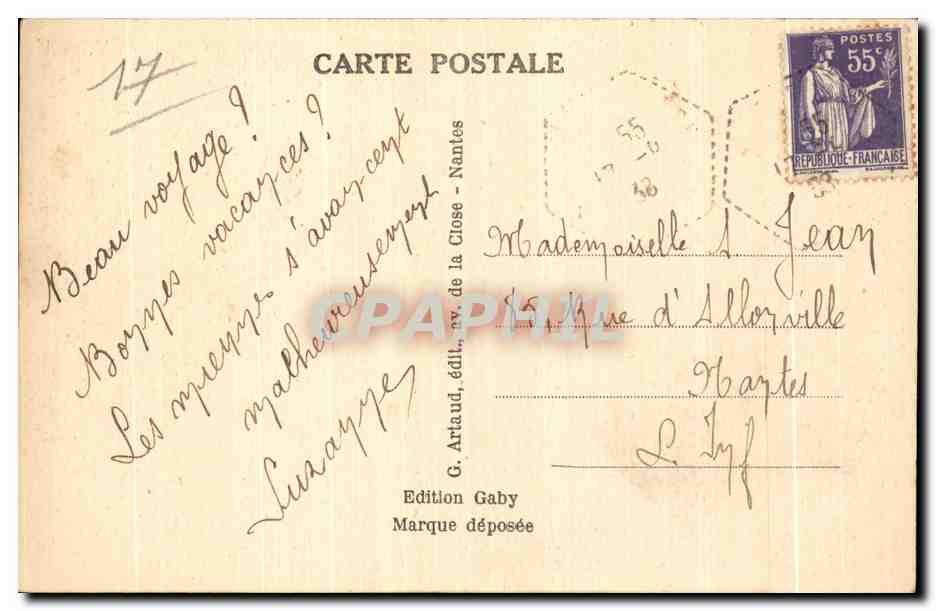 17
CARTE POSTALE
POSTES
55c
REPUBLIQUE-FRANÇAISE
Beau voyage!
Bonnes vacances!
Les miennes s'avancent
malheureusement
Suzanne
G. Artaud, édit., av. de la Close - Nantes
55
38
55
38
Mademoiselle S Jean
Rue d'Allonville
Nantes
L. Inf
CPAPHIL
Edition Gaby
Marque déposée